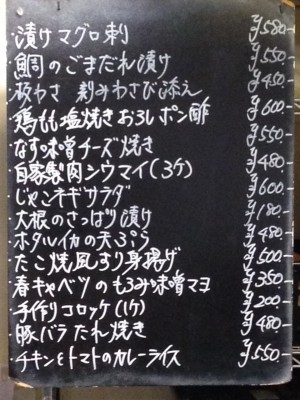 ・漬けマグロ刺 ¥580-
・鯛のごまだれ漬け ¥550-
・板わさ 刻みわさび添え ¥450-
・鶏もも塩焼きおろしポン酢 ¥600-
・なす味噌チーズ焼き ¥550-
・自家製肉シウマイ(3ケ) ¥480-
・じゃこネギサラダ ¥600-
・大根のさっぱり漬け ¥180-
・ホタルイカの天ぷら ¥480-
・たこ焼風すり身揚げ ¥500-
・春キャベツのもろみ味噌マヨ ¥350-
・手作りコロッケ(1ケ) ¥200-
・豚バラたれ焼き ¥480-
・チキンとトマトのカレーライス ¥550-